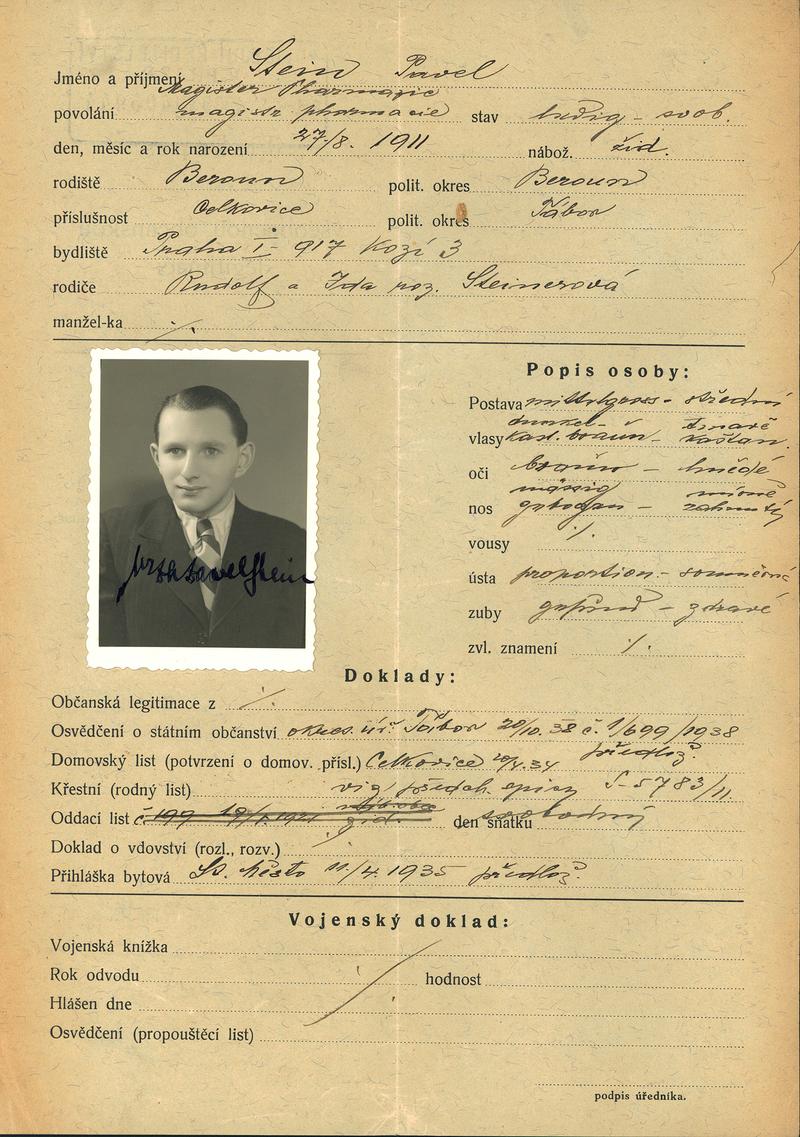 Jméno a příjmení Stein Pavel
Magister Pharmazie
povolání magistr pharmacie stav ledig - svob.
den, měsíc a rok narození 27/8. 1911 nábož. žid.
rodiště Beroun polit. okres Beroun
příslušnost Celkovice polit. okres Tábor
bydliště Praha I - 917 Kozí 3
rodiče Rudolf a Ida roz. Steinerová
manžel-ka ./.
Popis osoby:
Postava mittelgross - střední
dunkel- tmavě
vlasy kast. braun - kaštan.
oči braun - hnědé
mässig mírně
nos gebogen - zahnutý
vousy ./.
ústa proportion. - souměrná
zuby gesund - zdravé
zvl. znamení ./.
Pavel Stein
Doklady:
Občanská legitimace z ./.
Osvědčení o státním občanství okres. úř. Tábor 20/10. 38 č. 1/699/1938
předlož.
Domovský list (potvrzení o domov. přísl.) Celkovice 34
Křestní (rodný list) viz předch. spisy S-5783/11
Oddací list č. 199 žid. den sňatku svobodný
Doklad o vdovství (rozl., rozv.) ./.
Přihláška bytová St. Město 11/4. 1935 předlož.
Vojenský doklad:
Vojenská knížka
Rok odvodu hodnost
Hlášen dne
Osvědčení (propouštěcí list)
podpis úředníka.